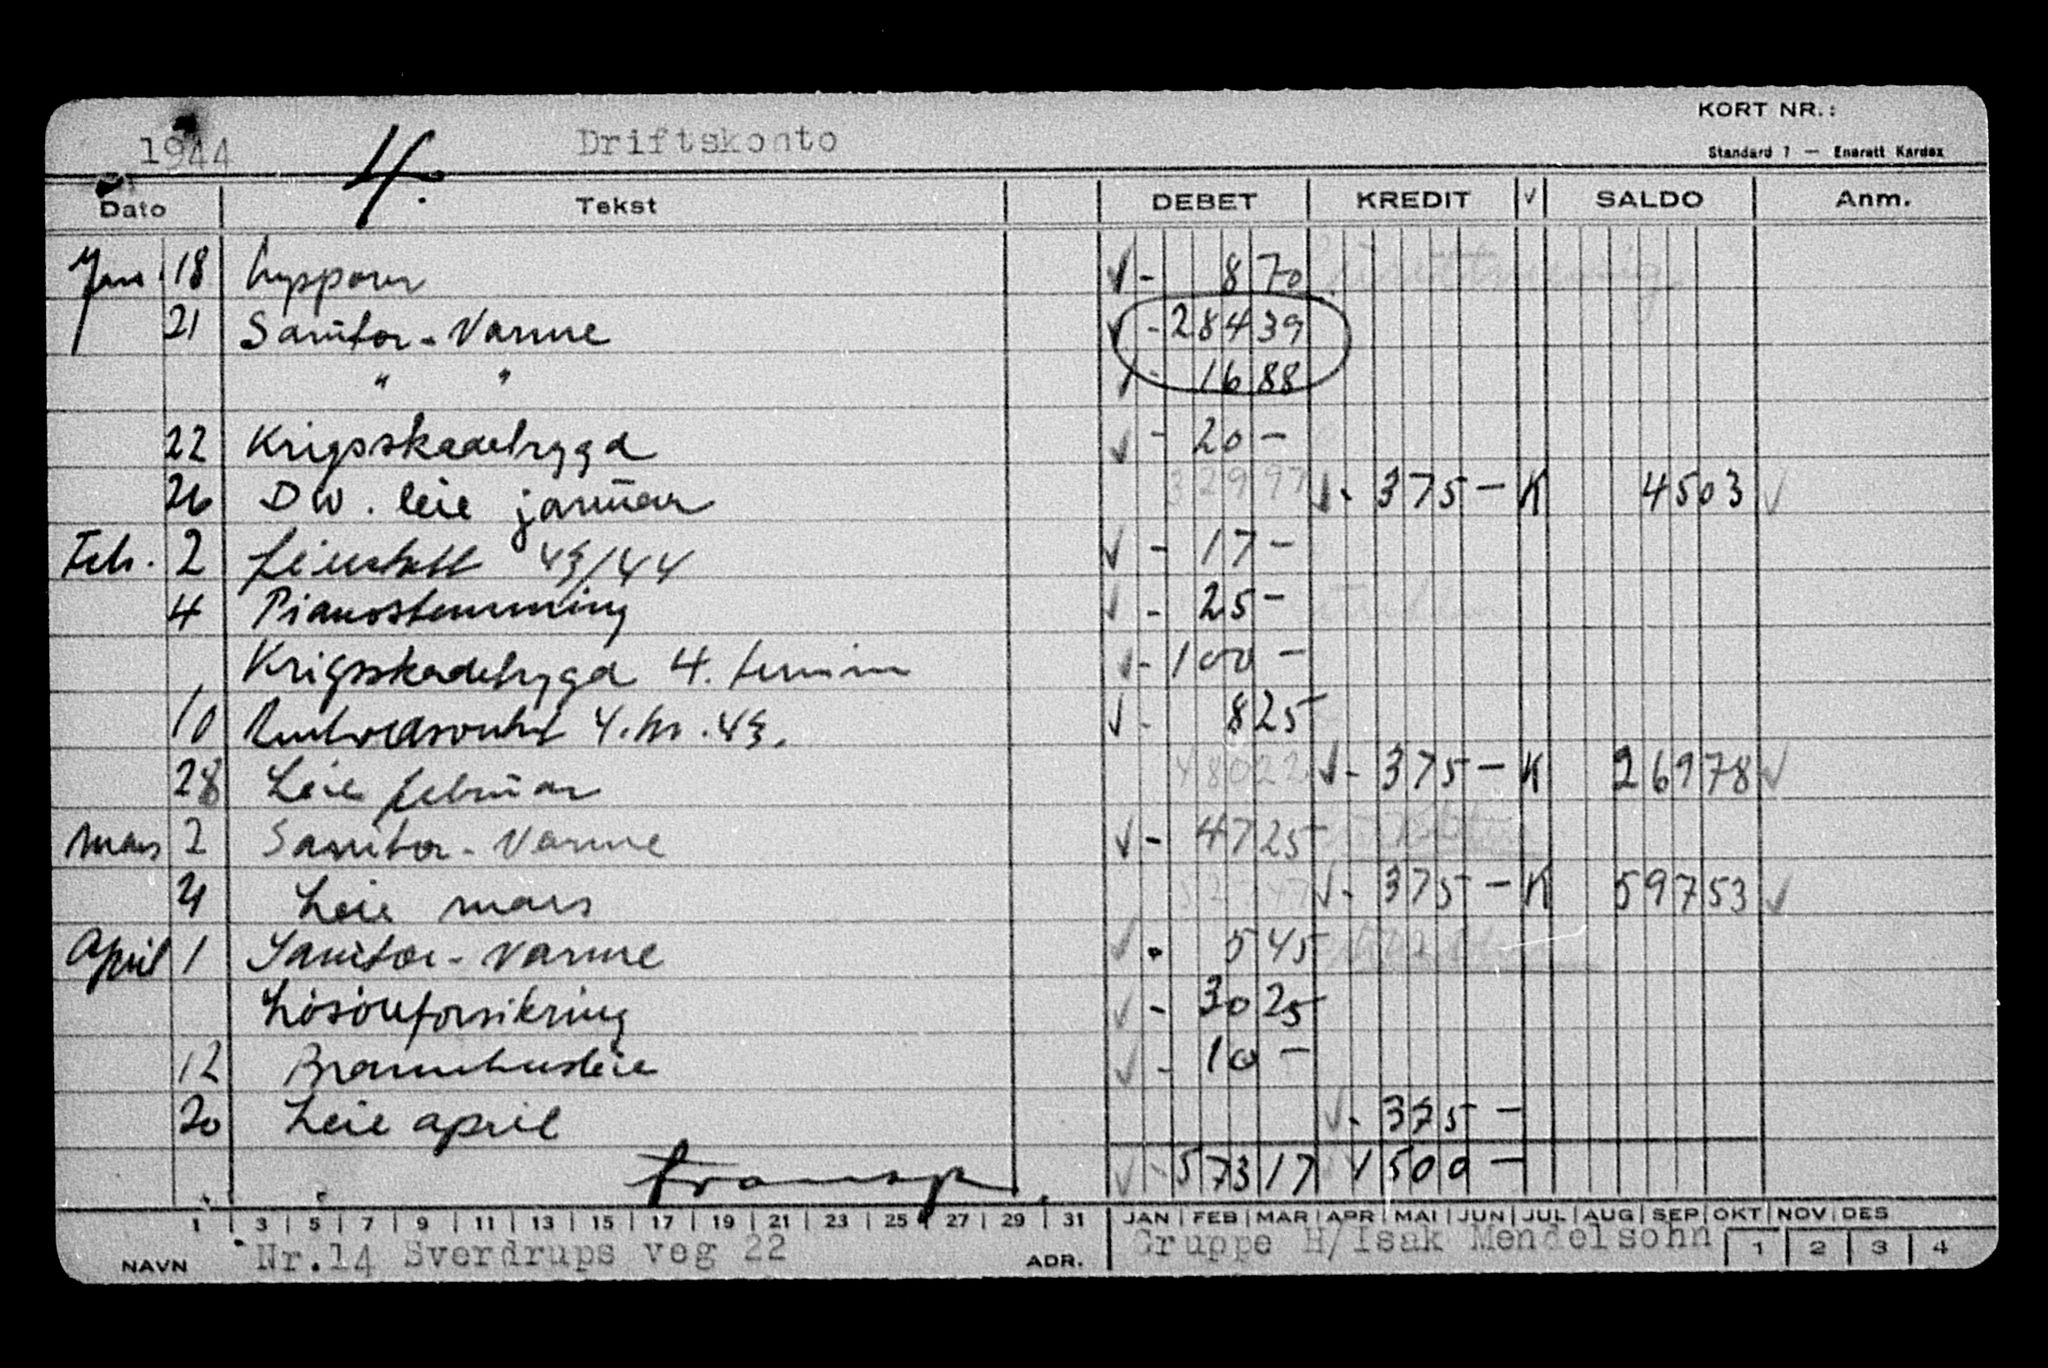 KORT NR.:
1944 4. Driftskonto
Standard 7 — Enerett Kardex
Dato Tekst DEBET KREDIT √ SALDO Anm.
Jan. 18 √ - 8 70
21 Sanitær - Varme √ - 284 39
" " √ - 16 88
22 Krigsskadetrygd √ - 20 -
26 DW. leie januar 329 97 √ - 375 - K 45 03 √
Feb. 2 43/44 √ - 17 -
4 Pianostemming √ - 25 -
Krigsskadetrygd 4. termin √ - 100 -
10 4. kv. 43. √ - 8 25
28 Leie februar 480 22 √ - 375 - K 269 78 √
Mars 2 Sanitær - Varme √ - 47 25
21 Leie mars 527 47 √ - 375 - K 597 53 √
April 1 Sanitær - Varme √ - 5 45
Løsøreforsikring √ - 30 25
12 √ - 10 -
20 Leie april √ - 375 -
transp. √ - 573 17 √ 1500 -
1 3 5 7 9 11 13 15 17 19 21 23 25 27 29 31 JAN FEB MAR APR MAI JUN JUL AUG SEP OKT NOV DES
NAVN Nr.14 Sverdrups veg 22 ADR. Gruppe H/Isak Mendelsohn 1 2 3 4